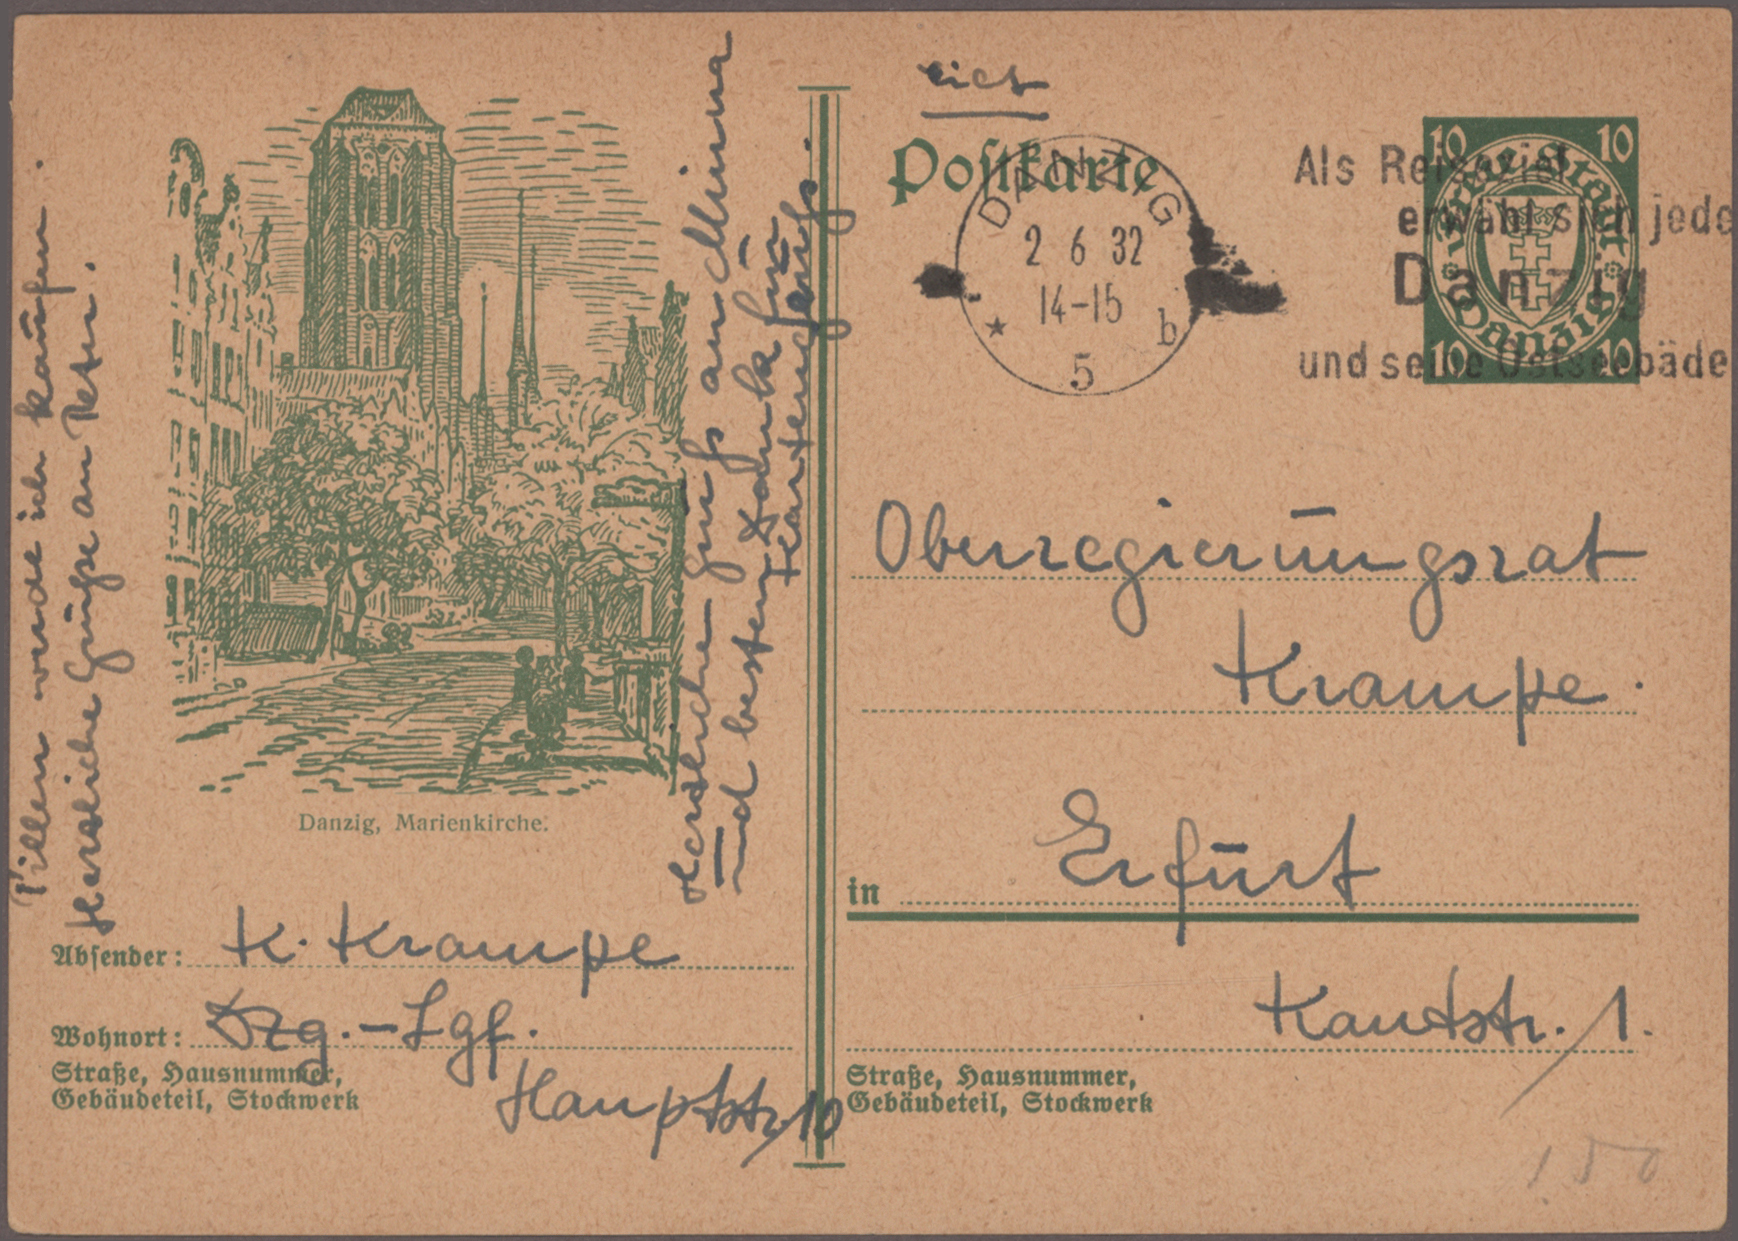 Pillen werde ich kaufen.
Herzliche Grüße an Peter.
Danzig, Marienkirche.
Herzliche Grüße an Minna
und besten Dank für
Kartengruß.
Absender: K. Krampe
Wohnort: Dzg.-Lgf.
Straße, Hausnummer,
Gebäudeteil, Stockwerk
Hauptstr. 10
Postkarte
DANZIG
2 6 32
14-15
b
5
Als Reiseziel
erwähl sich jede
Danzig
und seine Ostseebäde
10 10
Freie Stadt Danzig
10 10
Oberregierungsrat
Krampe.
in Erfurt
Kantstr. 1.
Straße, Hausnummer,
Gebäudeteil, Stockwerk
150